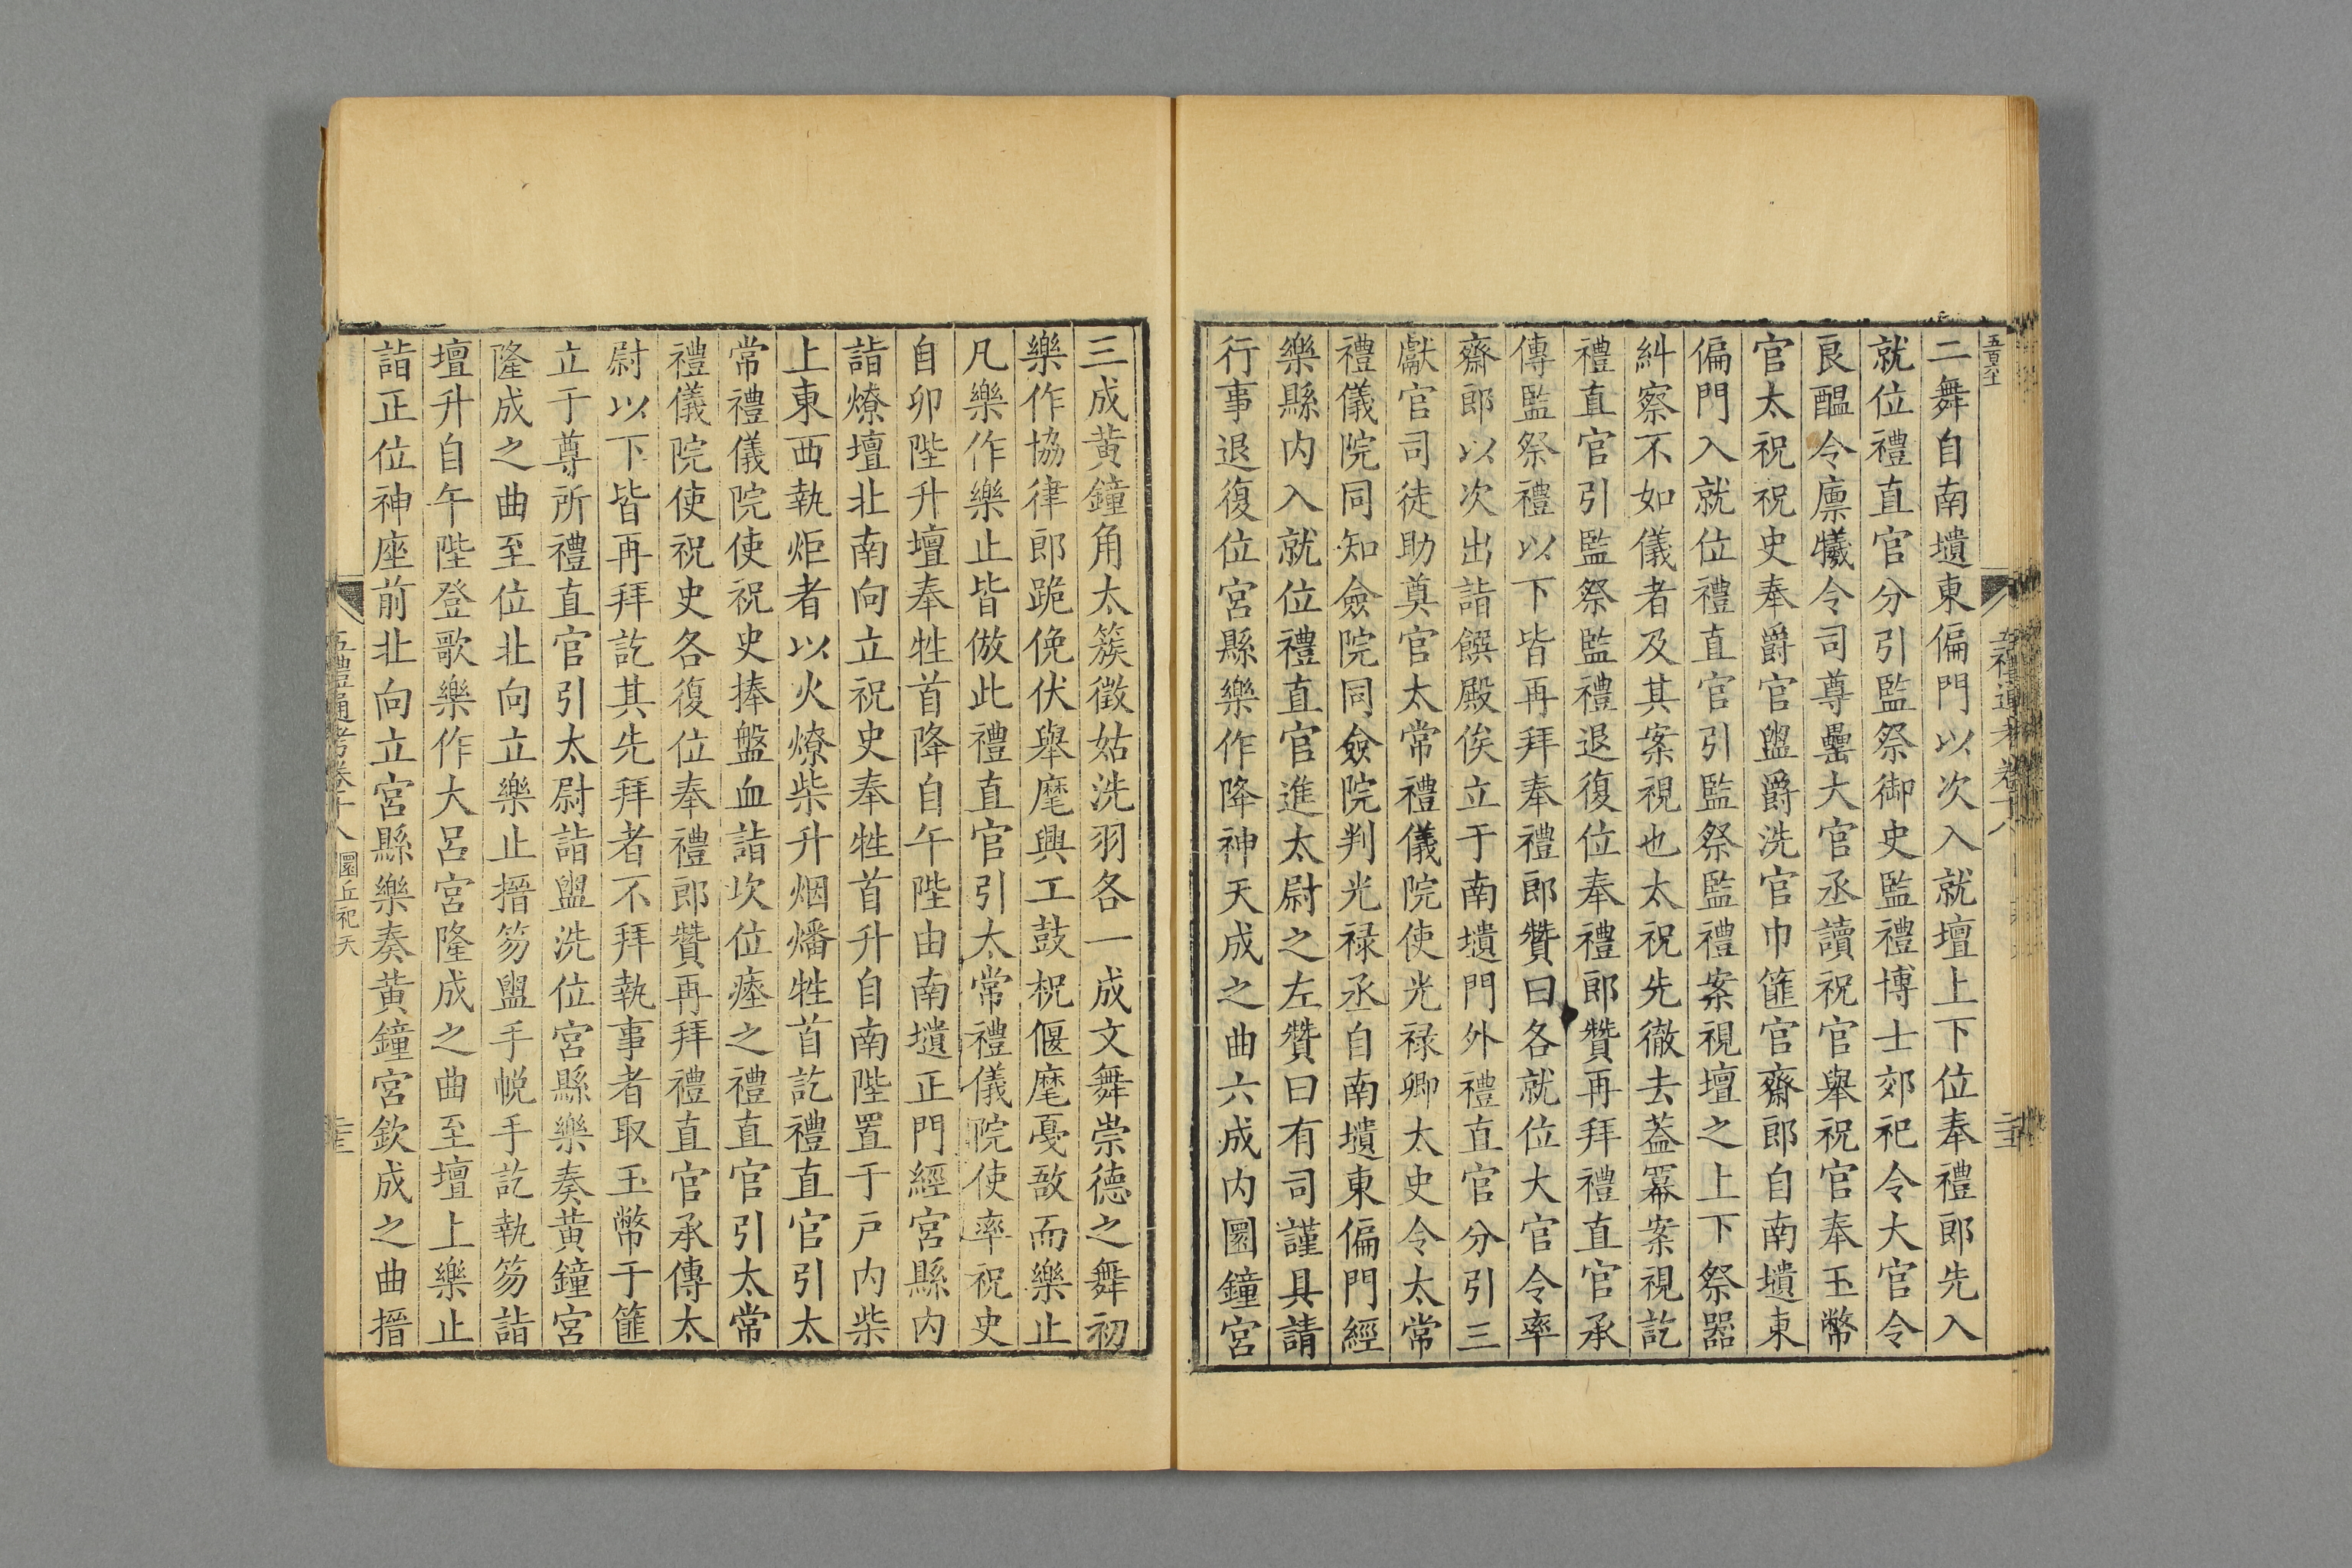 二舞自南壝東偏門以次入就壇上下位奉禮郎先入
就位禮直官分引監祭御史監禮博士郊祀令大官令
良醖令廩犧令司尊罍大官丞讀祝官舉祝官奉玉幣
官太祝祝史奉爵官盥爵洗官巾篚官齋郎自南壝東
偏門入就位禮直官引監祭監禮案視壇之上下祭器
糾察不如儀者及其案視也太祝先徹去蓋冪案視訖
禮直官引監祭監禮退復位奉禮郎贊再拜禮直官承
傳監祭禮以下皆再拜奉禮郎贊曰各就位大官令率
齋郎以次出詣饌殿俟立于南壝門外禮直官分引三
獻官司徒助奠官太常禮儀院使光禄卿太史令太常
禮儀院同知僉院同僉院判光禄丞自南壝東偏門經
樂縣内入就位禮直官進太尉之左贊曰有司謹具請
行事退復位宮縣樂作降神天成之曲六成内圜鐘宮
三成黄鐘角太簇徵姑洗羽各一成文舞崇德之舞初
樂作協律郎跪俛伏舉麾興工鼓柷偃麾戞敔而樂止
凡樂作樂止皆倣此禮直官引太常禮儀院使率祝史
自卯陛升壇奉牲首降自午陛由南壝正門經宮縣内
詣燎壇北南向立祝史奉牲首升自南陛置于户内柴
上東西執炬者以火燎柴升烟燔牲首訖禮直官引太
常禮儀院使祝史捧盤血詣坎位瘞之禮直官引太常
禮儀院使祝史各復位奉禮郎贊再拜禮直官承傳太
尉以下皆再拜訖其先拜者不拜執事者取玉幣于篚
立于尊所禮直官引太尉詣盥洗位宮縣樂奏黄鐘宮
隆成之曲至位北向立樂止搢笏盥手帨手訖執笏詣
壇升自午陛登歌樂作大呂宮隆成之曲至壇上樂止
詣正位神座前北向立宮縣樂奏黄鐘宮欽成之曲搢
五禮通考卷十八 圜丘祀天